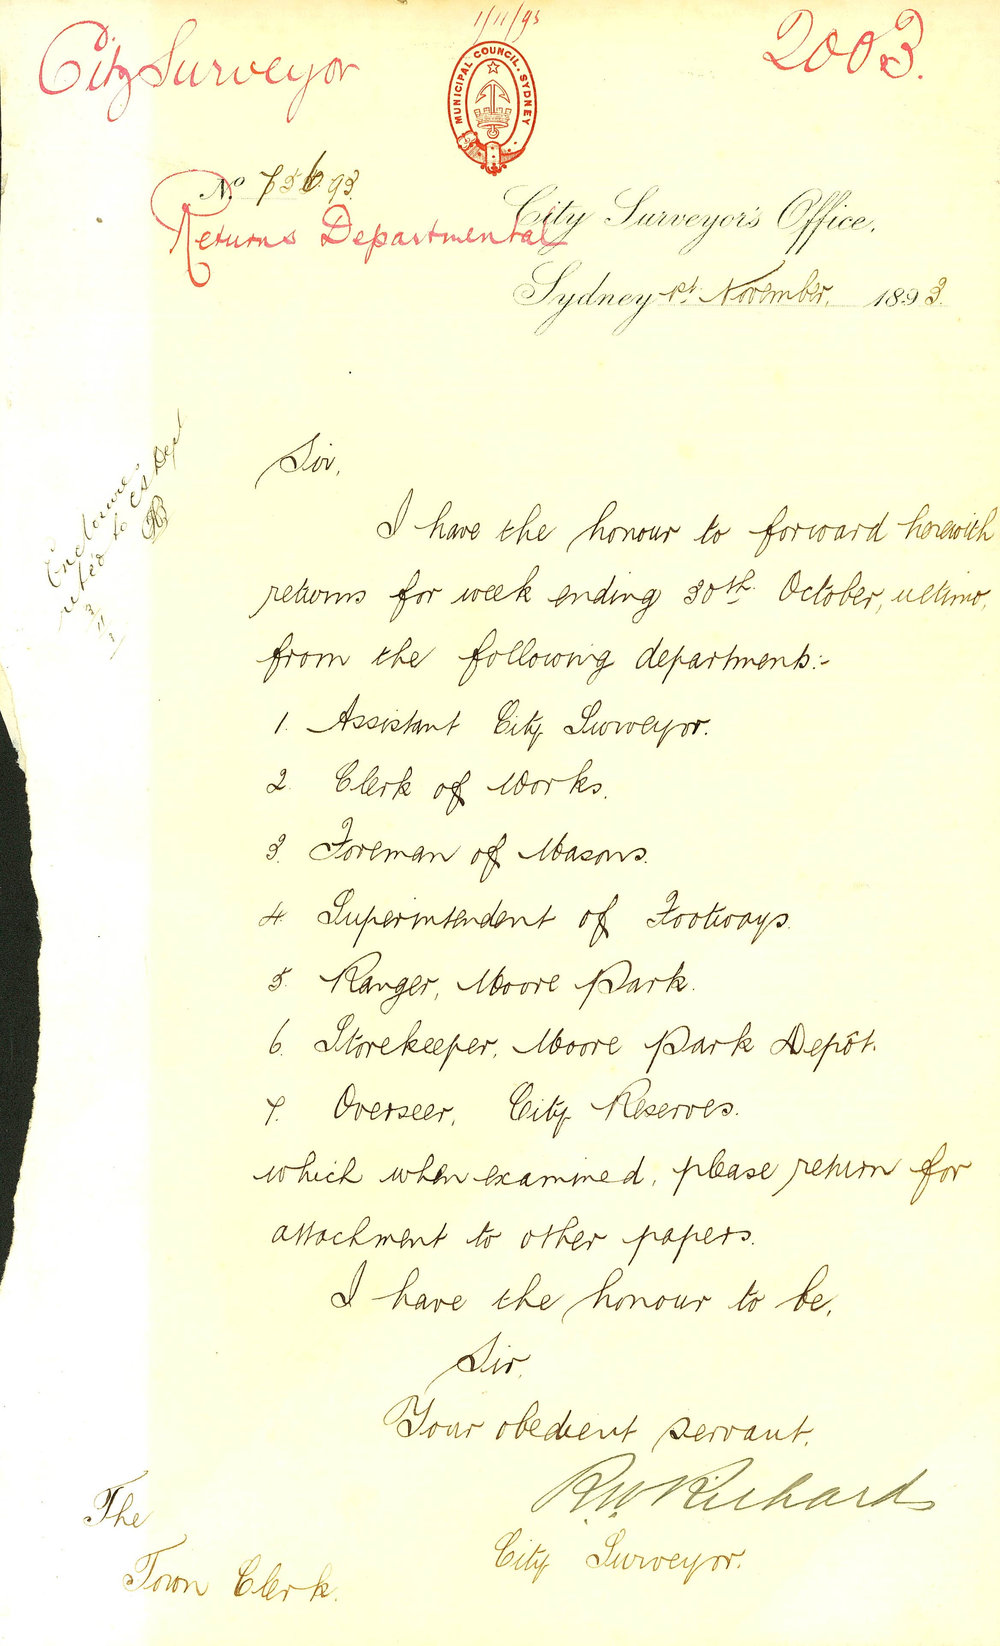 1/11/93
City Surveyor
2003.
MUNICIPAL COUNCIL, SYDNEY
No 756.93.
Returns Departmental
City Surveyor's Office,
Sydney 1st November, 1893.
Enclosures
retd to CS Dept
3/11/
Sir,
I have the honour to forward herewith
returns for week ending 30th October, ultimo,
from the following departments:-
1. Assistant City Surveyor.
2. Clerk of Works.
3. Foreman of Masons.
4. Superintendent of Footways.
5. Ranger, Moore Park.
6. Storekeeper, Moore Park Depôt.
7. Overseer, City Reserves.
which when examined, please return for
attachment to other papers.
I have the honour to be,
Sir,
Your obedient servant,
R.W. Richard
City Surveyor.
The
Town Clerk.